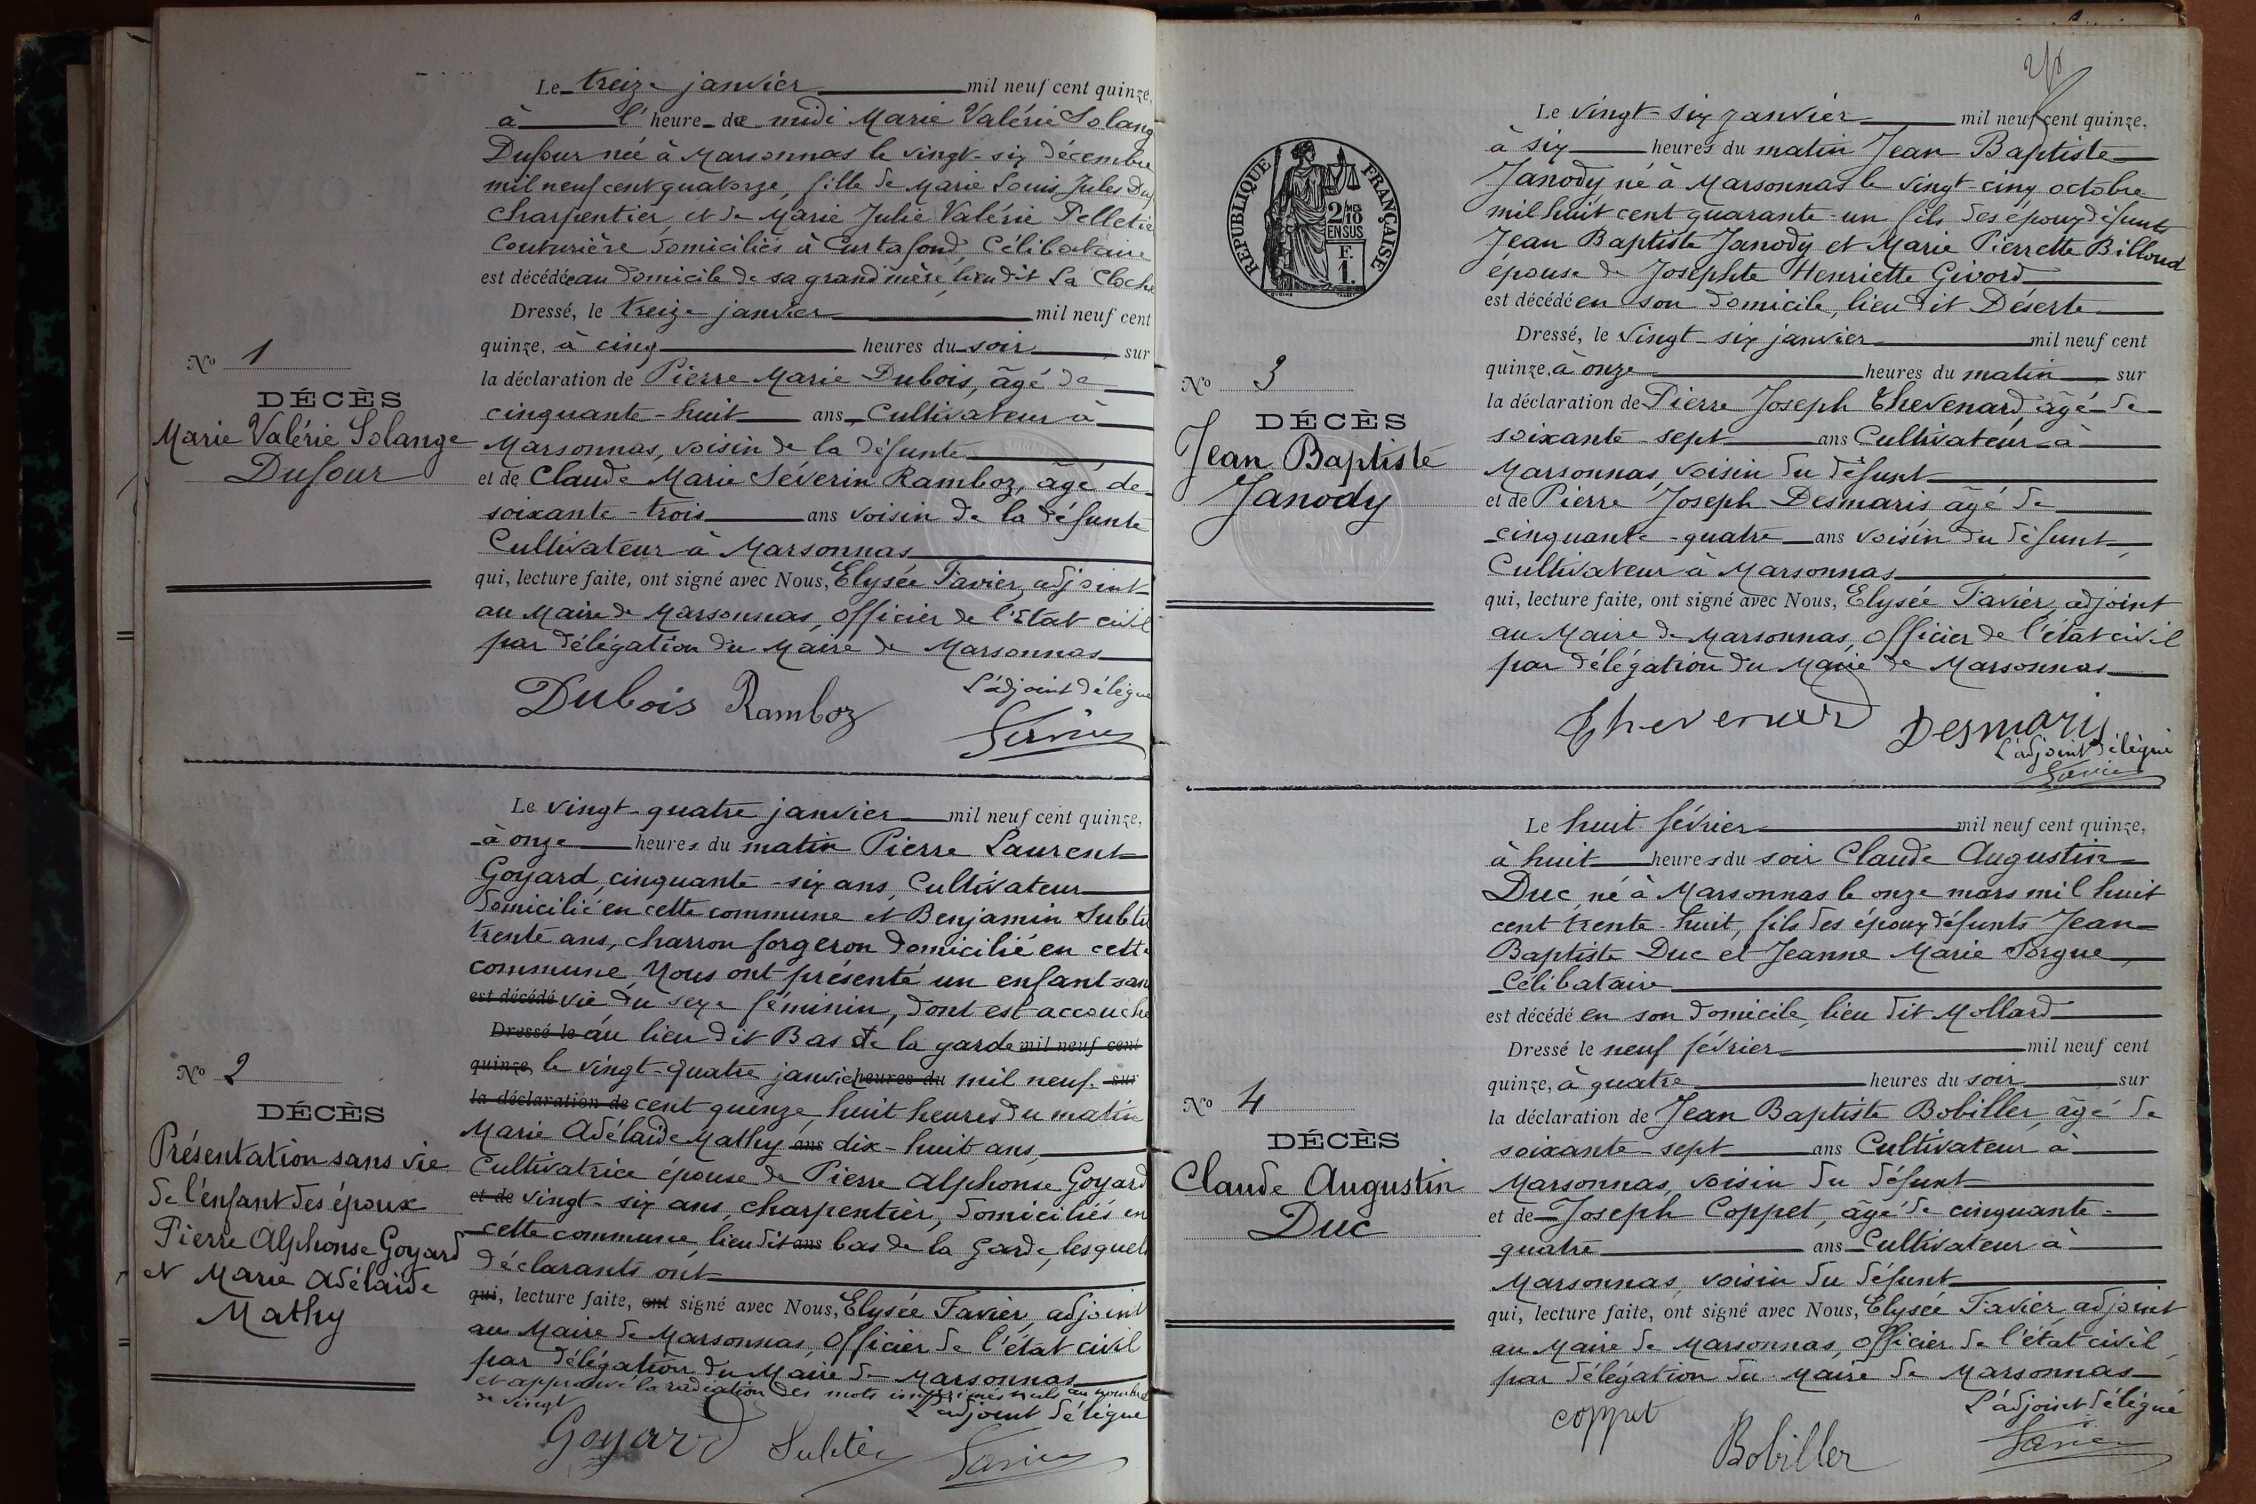 Le treize janvier mil neuf cent quinze,
à l'heure de midi Marie Valérie Solang
Dufour née à Marsonnas le vingt-six décembre
mil neuf cent quatorze, fille de Marie Louis Jules Duf
Charpentier, et de Marie Julie Valérie Pelletie
Couturière domiciliés à Curtafond, Célibataire
est décédée au domicile de sa grand'mère, lieu dit La Cloche
Dressé, le treize janvier mil neuf cent
quinze, à cinq heures du soir, sur
la déclaration de Pierre Marie Dubois, âgé de
cinquante-huit ans, Cultivateur à
Marsonnas, voisin de la défunte
et de Claude Marie Séverin Ramboz, âgé de
soixante-trois ans voisin de la défunte
Cultivateur à Marsonnas
qui, lecture faite, ont signé avec Nous, Elysée Favier, adjoint
au Maire de Marsonnas, Officier de l'Etat civil
par délégation du Maire de Marsonnas
Dubois Ramboz L'adjoint délégué
Favier
No 1
DÉCÈS
Marie Valérie Solange
Dufour
Le vingt-quatre janvier mil neuf cent quinze,
à onze heures du matin Pierre Laurent
Goyard, cinquante-six ans, Cultivateur
domicilié en cette commune et Benjamin
trente ans, charron forgeron domicilié en cette
commune, Nous ont présenté un enfant sans
est décédé vie du sexe féminin, dont est accouché
Dressé le au lieu dit Bas de la garde mil neuf cent
quinze, le vingt-quatre janvier heures du mil neuf sur
la déclaration de cent quinze, huit heures du matin
Marie Adélaïde Mathy ans dix-huit ans,
Cultivatrice épouse de Pierre Alphonse Goyard
et de vingt-six ans, charpentier, domiciliés en
cette commune, lieu dit ans bas de la Garde, lesquels
déclarants ont
qui, lecture faite, ont signé avec Nous, Elysée Favier, adjoint
au Maire de Marsonnas, Officier de l'état civil
par délégation du Maire de Marsonnas
et approuvé la radiation des mots imprimés nuls au nombre
de vingt L'adjoint délégué
Goyard Favier
No 2
DÉCÈS
Présentation sans vie
de l'enfant des époux
Pierre Alphonse Goyard
et Marie Adélaïde
Mathy
Le vingt-six janvier mil neuf cent quinze,
à six heures du matin Jean Baptiste
Janody né à Marsonnas le vingt-cinq octobre
mil huit cent quarante-un fils des époux défunts
Jean Baptiste Janody et Marie Pierrette Billoud
épouse de Josephte Henriette Givord
est décédé en son domicile, lieu dit Déserte
Dressé, le vingt-six janvier mil neuf cent
quinze, à onze heures du matin, sur
la déclaration de Pierre Joseph Thevenard âgé de
soixante-sept ans Cultivateur à
Marsonnas, voisin du défunt
et de Pierre Joseph Desmaris, âgé de
cinquante-quatre ans voisin du défunt,
Cultivateur à Marsonnas
qui, lecture faite, ont signé avec Nous, Elysée Favier, adjoint
au Maire de Marsonnas, Officier de l'état civil
par délégation du Maire de Marsonnas
Thevenard Desmaris
L'adjoint délégué
Favier
RÉPUBLIQUE FRANÇAISE
2/10
EN SUS
F.
1.
No 3
DÉCÈS
Jean Baptiste
Janody
Le huit février mil neuf cent quinze,
à huit heures du soir Claude Augustin
Duc, né à Marsonnas le onze mars mil huit
cent trente-huit, fils des époux défunts Jean
Baptiste Duc et Jeanne Marie Sorgue,
célibataire
est décédé en son domicile, lieu dit Mollard
Dressé le neuf février mil neuf cent
quinze, à quatre heures du soir sur
la déclaration de Jean Baptiste Bobiller, âgé de
soixante-sept ans Cultivateur à
Marsonnas, voisin du défunt
et de Joseph Coppet, âgé de cinquante-
quatre ans Cultivateur à
Marsonnas, voisin du défunt
qui, lecture faite, ont signé avec Nous, Elysée Favier, adjoint
au Maire de Marsonnas, Officier de l'état civil,
par délégation du Maire de Marsonnas
Coppet L'adjoint délégué
Bobiller Favier
No 4
DÉCÈS
Claude Augustin
Duc